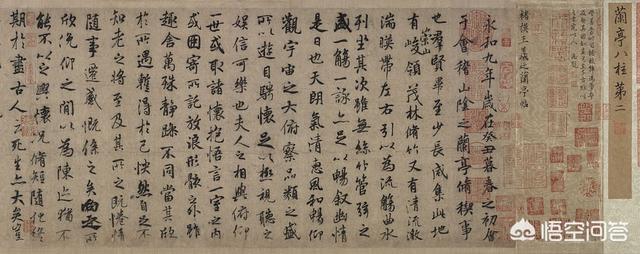 蘭亭八柱第二
褚摸王羲之蘭亭帖
永和九年歲在癸丑暮春之初會
于會稽山陰之蘭亭脩稧事
也群賢畢至少長咸集此地
有崇山峻領茂林脩竹又有清流激
湍暎帶左右引以為流觴曲水
列坐其次雖無絲竹管弦之
盛一觴一詠亦足以暢敘幽情
是日也天朗氣清惠風和暢仰
觀宇宙之大俯察品類之盛
所以遊目騁懷足以極視聽之
娛信可樂也夫人之相與俯仰
一世或取諸懷抱悟言一室之內
或因寄所託放浪形骸之外雖
趣舍萬殊靜躁不同當其欣
於所遇暫得於己怏然自足不
知老之將至及其所之既惓情
隨事遷感慨係之矣向之所
欣俛仰之間以為陳迹猶不
能不以之興懷況脩短隨化終
期於盡古人云死生亦大矣豈
悟空问答